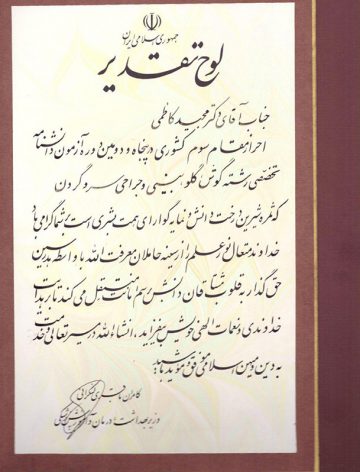 جمهوری اسلامی ایران
لوح تقدیر
جناب آقای دکتر مجید کاظمی
احراز مقام سوم کشوری در پنجاه و دومین دوره آزمون دانشنامه
تخصصی رشته گوش گلو بینی و جراحی سر و گردن
که ثمره شیرین درخت دانش و نمایه گوارای همت بشری است، بر شما گرامی باد
خداوند متعال نور علم را از سینه حاملان معرفت الله با واسطه مدرسین
حق گذار به قلوب مشتاقان دانش برسم امانت منتقل می کند تا بر برکات
خداوندی و نعمات الهی خویش بیفزاید، انشاءالله در مسیر تعالی و خدمت
به دین و میهن اسلامی موفق و مؤید باشید
کامران باقری لنکرانی
وزیر بهداشت، درمان و آموزش پزشکی